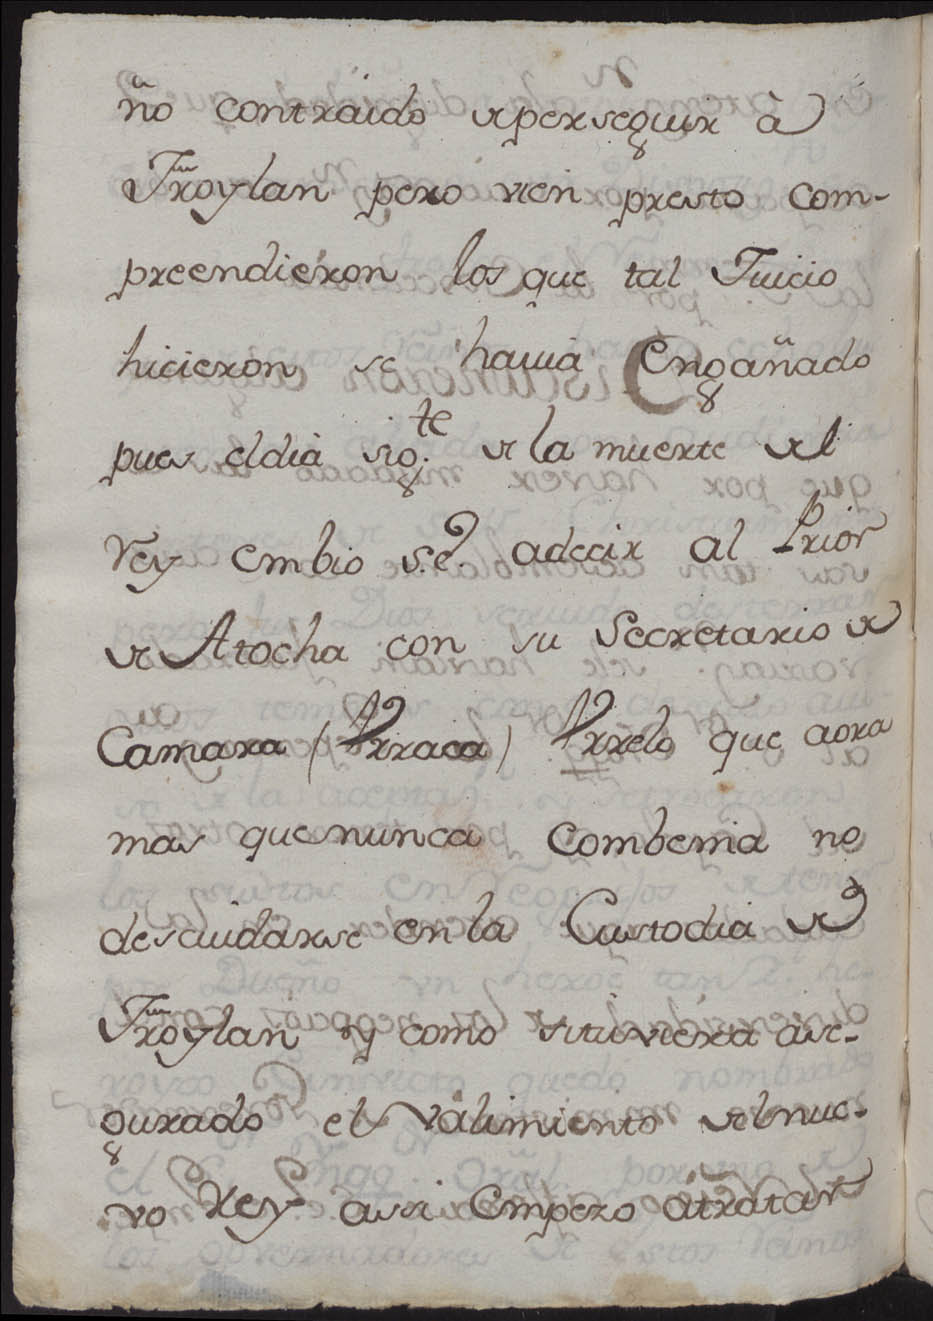 ño contraido de perseguir à
Froylan pero vien presto com-
preendieron los que tal Juicio
hicieron se havia Engañado
pues eldia sig.te de la muerte del
Rey embio S.E. adecir al Prior
de Atocha con su Secretario de
Camara (Arraca) Arrelo que aora
mas que nunca Combenia no
descuidarse en la Custodia de
Froylan y como si tuviera ase-
gurado el Valimiento del nue-
vo Rey asi Empezo átratar